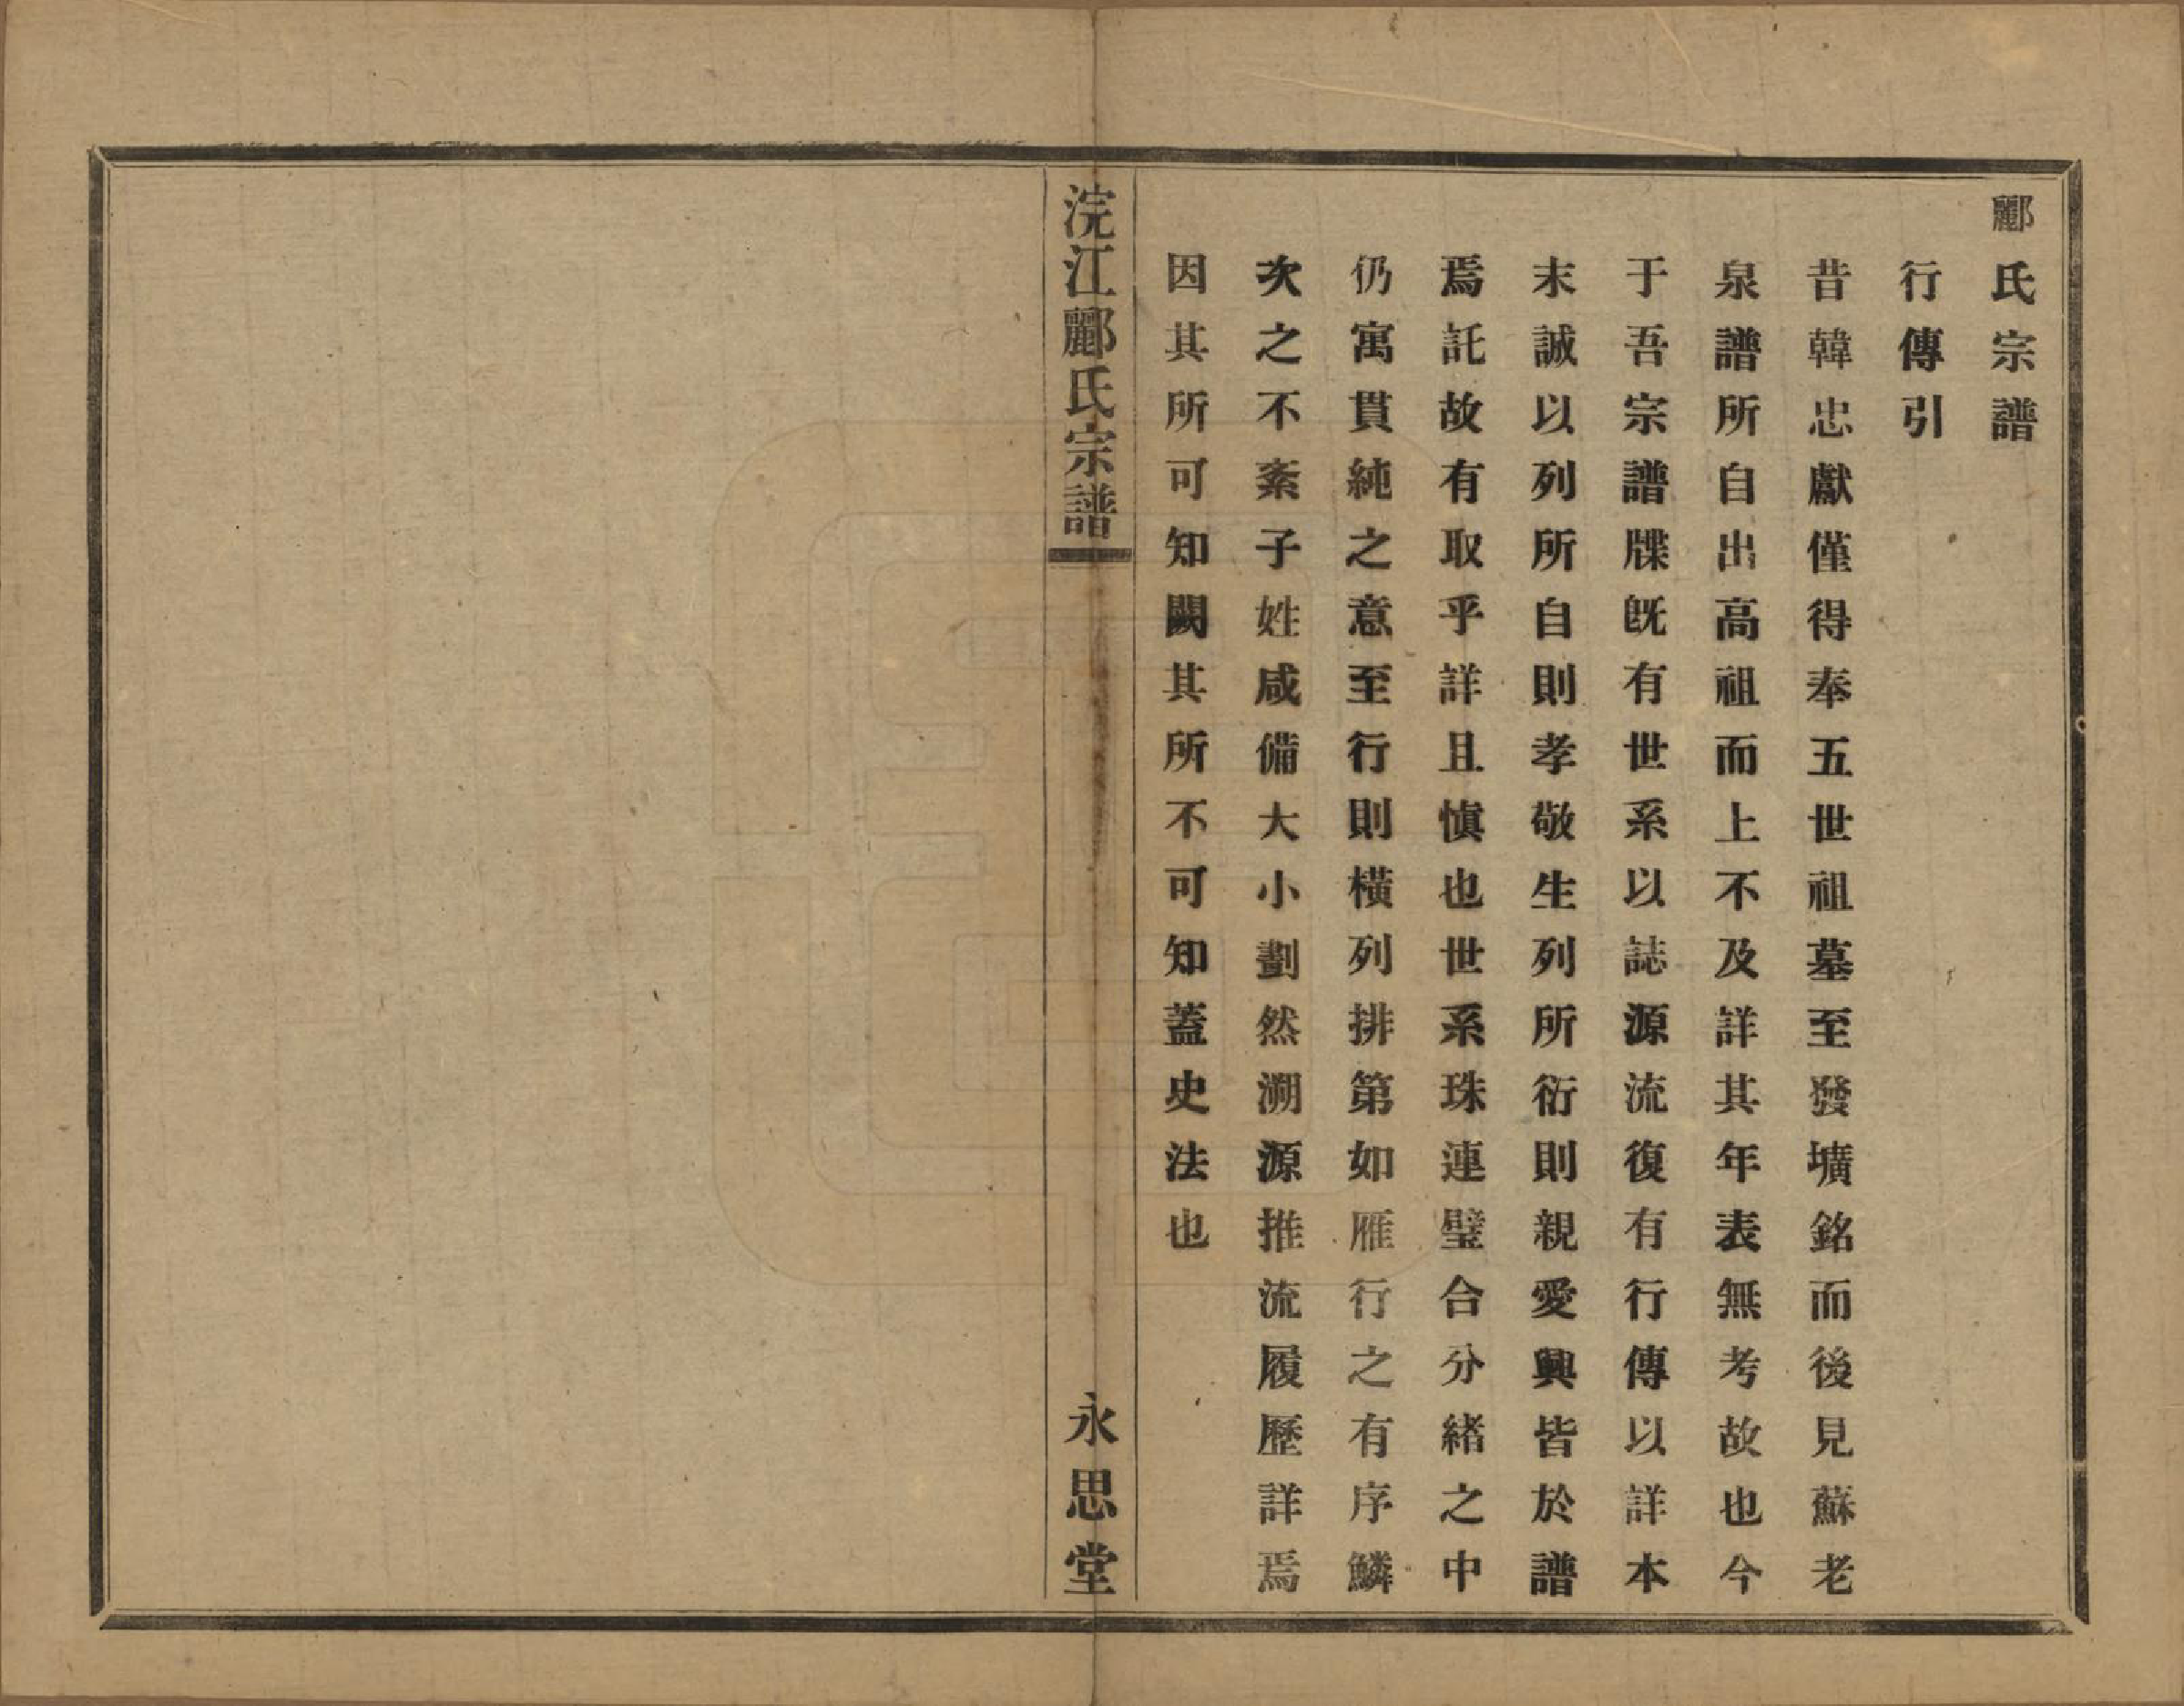 酈氏宗譜
行傳引
昔韓忠獻僅得奉五世祖墓至發壙銘而後見蘇老
泉譜所自出高祖而上不及詳其年表無考故也今
于吾宗譜牒旣有世系以誌源流復有行傳以詳本
末誠以列所自則孝敬生列所衍則親愛興皆於譜
焉託故有取乎詳且愼也世系珠連璧合分緒之中
仍寓貫純之意至行則橫列排第如雁行之有序鱗
次之不紊子姓咸備大小劃然溯源推流履歷詳焉
因其所可知闕其所不可知蓋史法也
浣江酈氏宗譜
永思堂